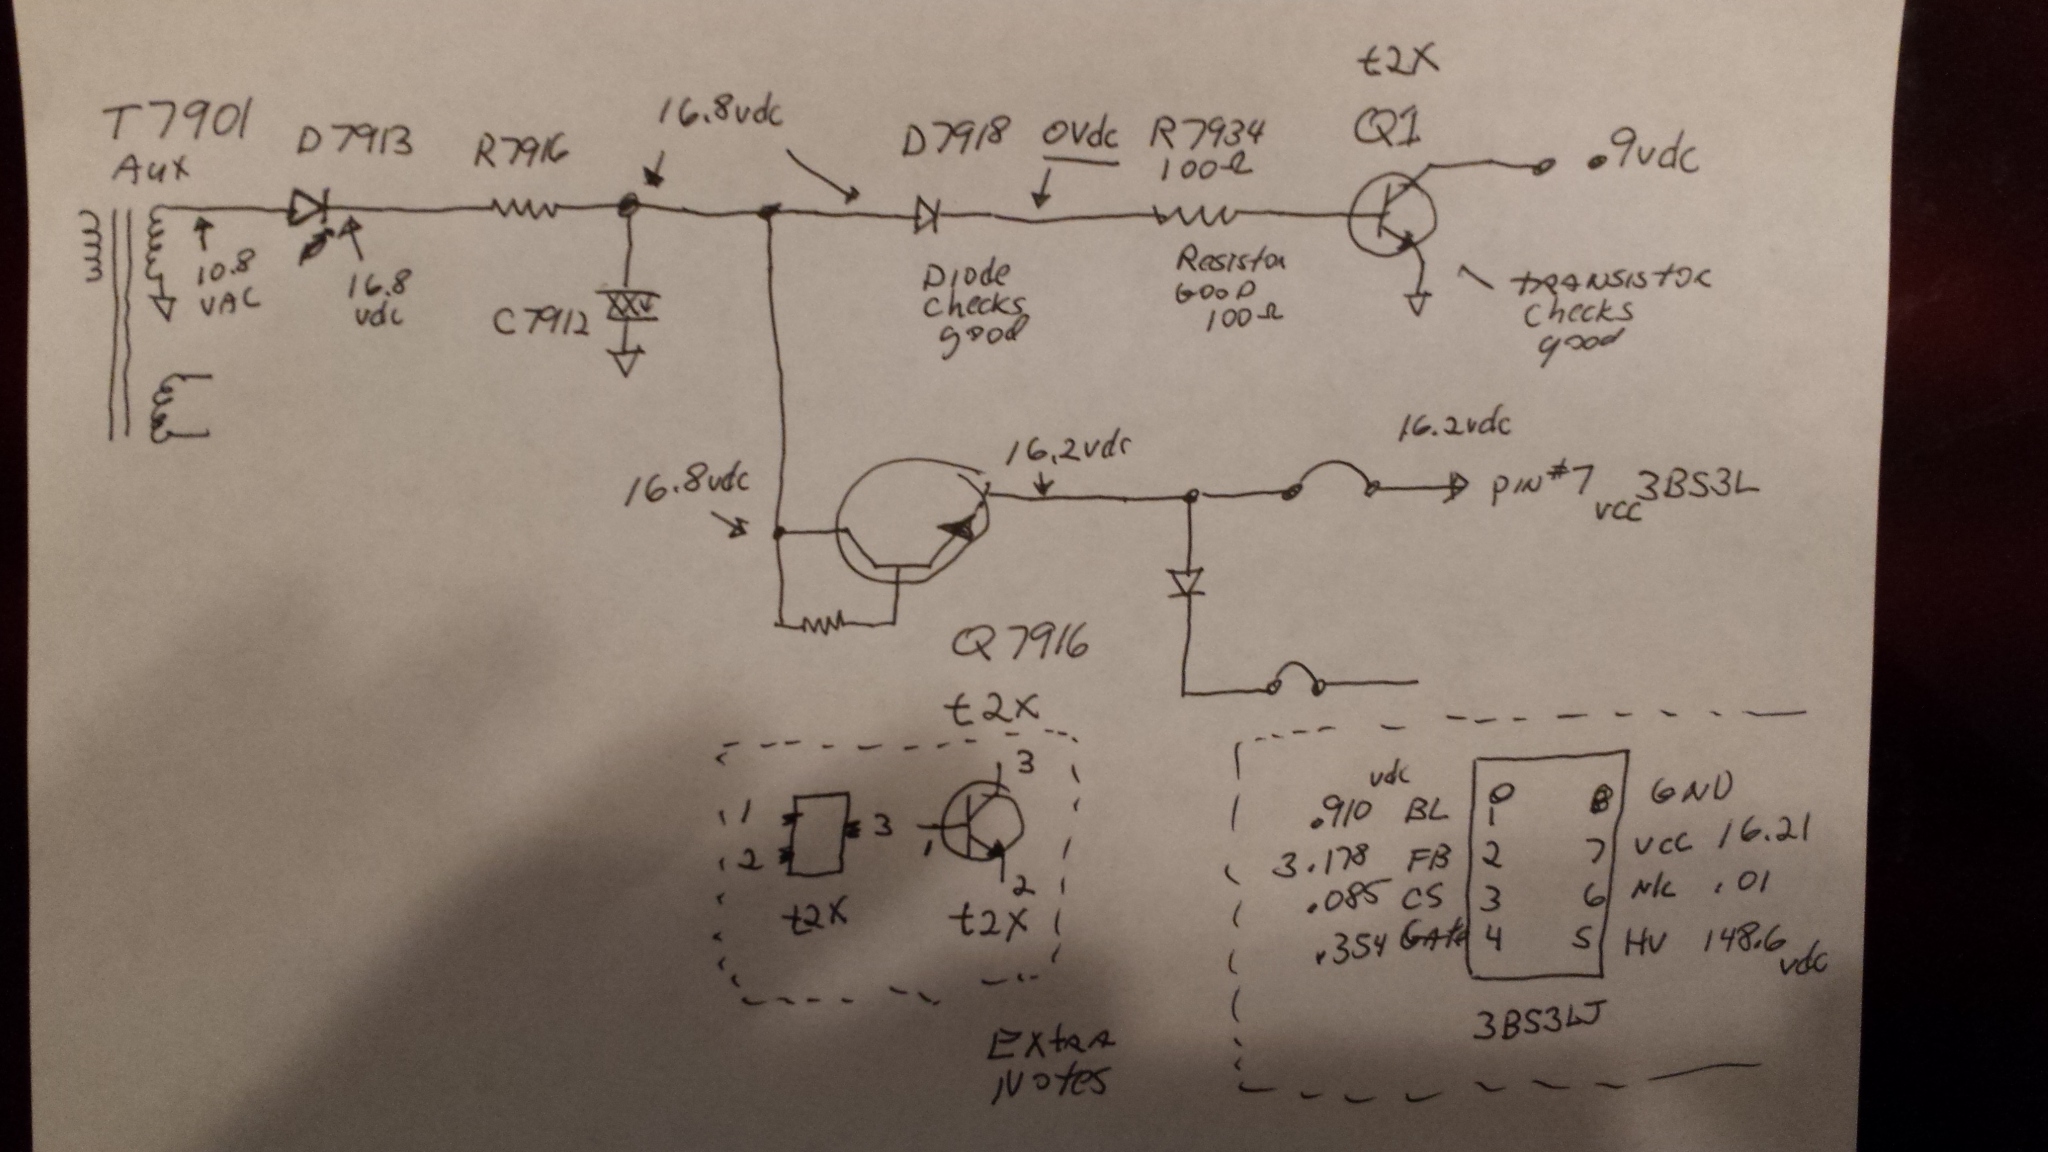 t2X
T7901
Aux
D7913
R7916
16.8vdc
D7918
0Vdc
R7934
100Ω
Q1
.9vdc
10.8
VAC
16.8
vdc
C7912
Diode
checks
good
Resistor
GOOD
100Ω
TRANSISTOR
checks
good
16.8vdc
16.2vdc
16.2vdc
PIN #7
VCC
3BS3L
Q7916
t2X
1
2
3
t2X
3
1
2
t2X
Extra
Notes
vdc
.910 BL 1 8 GND
3.178 FB 2 7 VCC 16.21
.085 CS 3 6 N/C .01
.354 GATE 4 5 HV 148.6
vdc
3BS3LJ